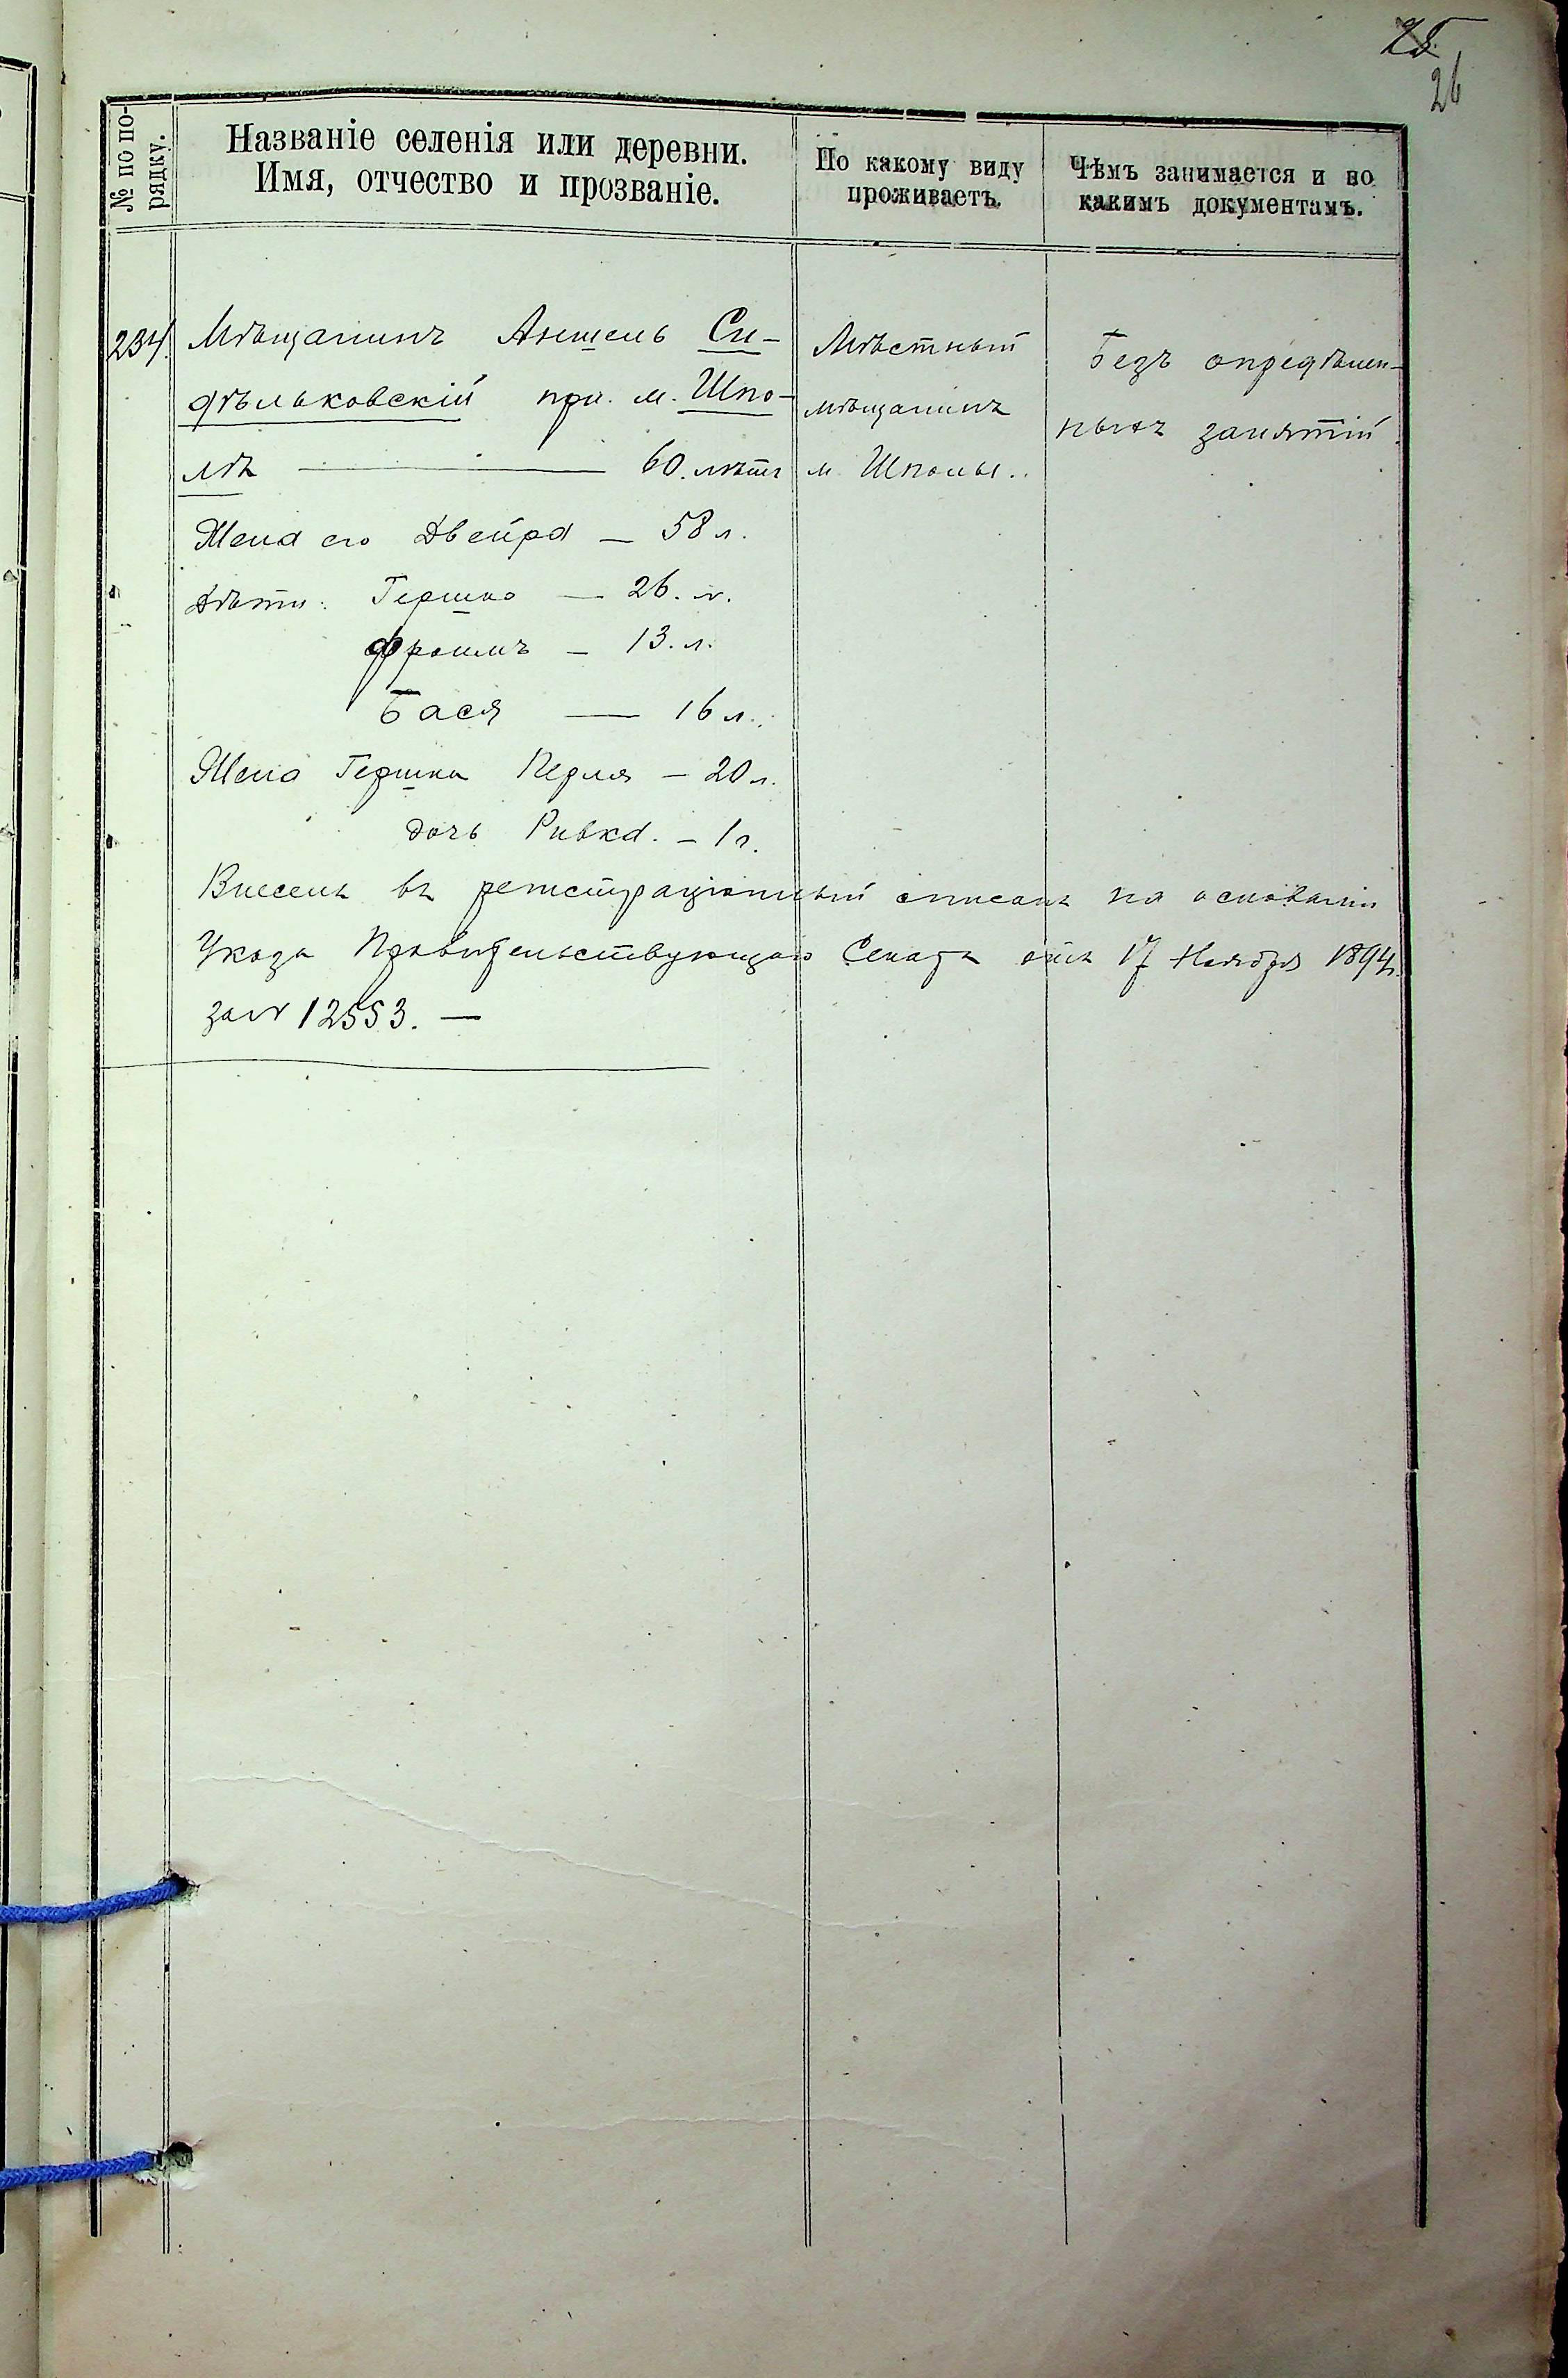 26
№ по по-
рядку.
Названіе селенія или деревни.
Имя, отчество и прозваніе.
По какому виду
проживаетъ.
Чѣмъ занимается и по
какимъ документамъ.
234. Мѣщанинъ Аншель Си-
дѣльковскій при м. Шпо-
лѣ — 60. лѣтъ
Жена его Двейра — 58 л.
Дѣти: Гершко — 26. л.
Фроимъ — 13. л.
Бася — 16 л.
Жена Гершки Перля — 20 л.
дочь Ривка. — 1 г.
Мѣстный
мѣщанинъ
м. Шполы.
Безъ опредѣлен-
ныхъ занятій.
Внесенъ въ регистраціонный списокъ на основаніи
Указа Правительствующаго Сената отъ 17 Ноября 1894 г.
за № 12553. —